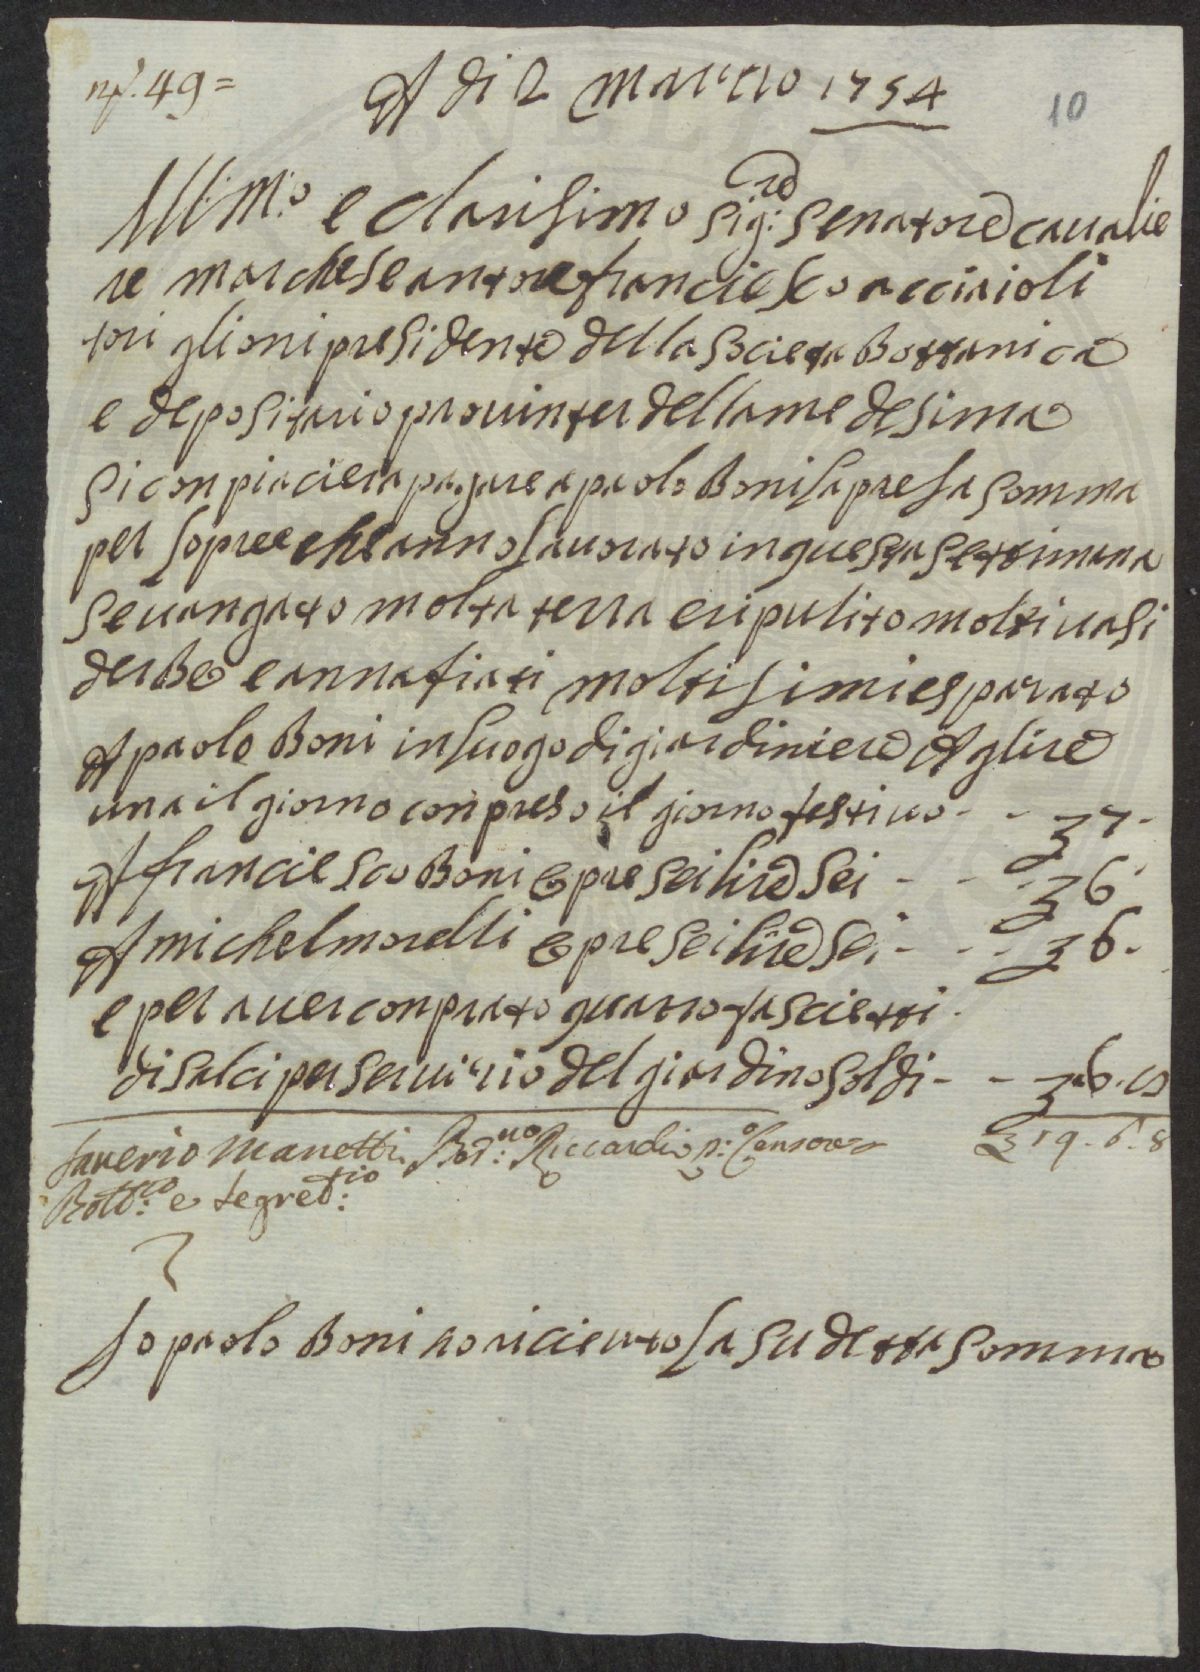 nº. 49 =
A di 2 Marzo 1754
10
Ill:mo e clarisimo Sig:re Senatore caualie
re marchese antonefranciesco acciaioli
toriglioni presidente della Societa Bottanica
e depositario prouinter della medesima
Si conpiaciera pagare a paolo Boni la presa Somma
per lopree che anno lauorato in questa settimana
Se uangato molta terra e ripulito molti uasi
derbe e annafiati moltisimi e sparato
A paolo Boni in luogo di giardiniere A glire
una il giorno conpreso il giorno festiuo - - 7 -
A franciesco Boni e pre sei lire Sei - - 6
A michel morelli e pre sei lire Sei - - 6 -
e per auer conprato quatro fascietti
di salci per seruizio del giardino soldi - - 6.
Saverio Manetti Ber:no Riccardi p:o Censore
19. 6. 8
Bott:co e Segret:io
Io paolo Boni o riceuto la su detta somma